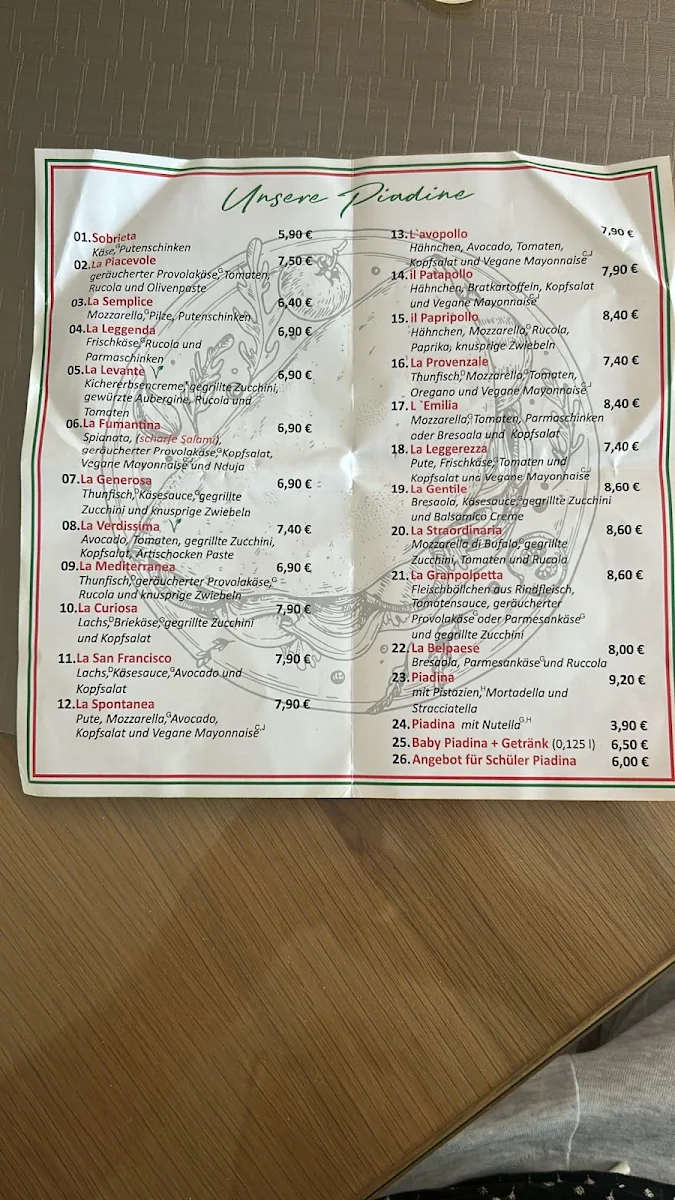 Unsere Piadine
01.Sobrieta 5,90 €
Käse,ᴳPutenschinken
02.La Piacevole 7,50 €
geräucherter Provolakäse,ᴳTomaten,
Rucola und Olivenpaste
03.La Semplice 6,40 €
Mozzarella,ᴳPilze, Putenschinken
04.La Leggenda 6,90 €
FrischkäseᴳRucola und
Parmaschinken
05.La Levante 6,90 €
Kichererbsencreme, gegrillte Zucchini,
gewürzte Aubergine, Rucola und
Tomaten
06.La Fumantina 6,90 €
Spianata, (scharfe Salami),
geräucherter Provolakäse,ᴳKopfsalat,
Vegane Mayonnaise und Nduja
07.La Generosa 6,90 €
Thunfisch,ᴰKäsesauce,ᴳgegrillte
Zucchini und knusprige Zwiebeln
08.La Verdissima 7,40 €
Avocado, Tomaten, gegrillte Zucchini,
Kopfsalat, Artischocken Paste
09.La Mediterranea 6,90 €
Thunfisch,ᴰgeräucherter Provolakäse,ᴳ
Rucola und knusprige Zwiebeln
10.La Curiosa 7,90 €
Lachs,ᴰBriekäse,ᴳgegrillte Zucchini
und Kopfsalat
11.La San Francisco 7,90 €
Lachs,ᴰKäsesauce,ᴳAvocado und
Kopfsalat
12.La Spontanea 7,90 €
Pute, Mozzarella,ᴳAvocado,
Kopfsalat und Vegane Mayonnaiseᶜ,ᴶ
13.L`avopollo 7,90 €
Hähnchen, Avocado, Tomaten,
Kopfsalat und Vegane Mayonnaiseᶜ,ᴶ
14.il Patapollo 7,90 €
Hähnchen, Bratkartoffeln, Kopfsalat
und Vegane Mayonnaiseᶜ,ᴶ
15.il Papripollo 8,40 €
Hähnchen, Mozzarella,ᴳRucola,
Paprika, knusprige Zwiebeln
16.La Provenzale 7,40 €
Thunfisch,ᴰMozzarella,ᴳTomaten,
Oregano und Vegane Mayonnaiseᶜ,ᴶ
17.L`Emilia 8,40 €
Mozzarella,ᴳTomaten, Parmaschinken
oder Bresoala und Kopfsalat
18.La Leggerezza 7,40 €
Pute, Frischkäse,ᴳTomaten und
Kopfsalat und Vegane Mayonnaiseᶜ,ᴶ
19.La Gentile 8,60 €
Bresaola, Käsesauce,ᴳgegrillte Zucchini
und Balsamico Creme
20.La Straordinaria 8,60 €
Mozzarella di Bufala,ᴳgegrillte
Zucchini, Tomaten und Rucola
21.La Granpolpetta 8,60 €
Fleischbällchen aus Rindfleisch,
Tomatensauce, geräucherter
Provolakäseᴳoder Parmesankäseᴳ
und gegrillte Zucchini
22.La Belpaese 8,00 €
Bresaola, Parmesankäseᴳund Ruccola
23.Piadina 9,20 €
mit Pistazien,ᴴMortadella und
Stracciatella
24.Piadina mit Nutellaᴳ,ᴴ 3,90 €
25.Baby Piadina + Getränk (0,125 l) 6,50 €
26.Angebot für Schüler Piadina 6,00 €